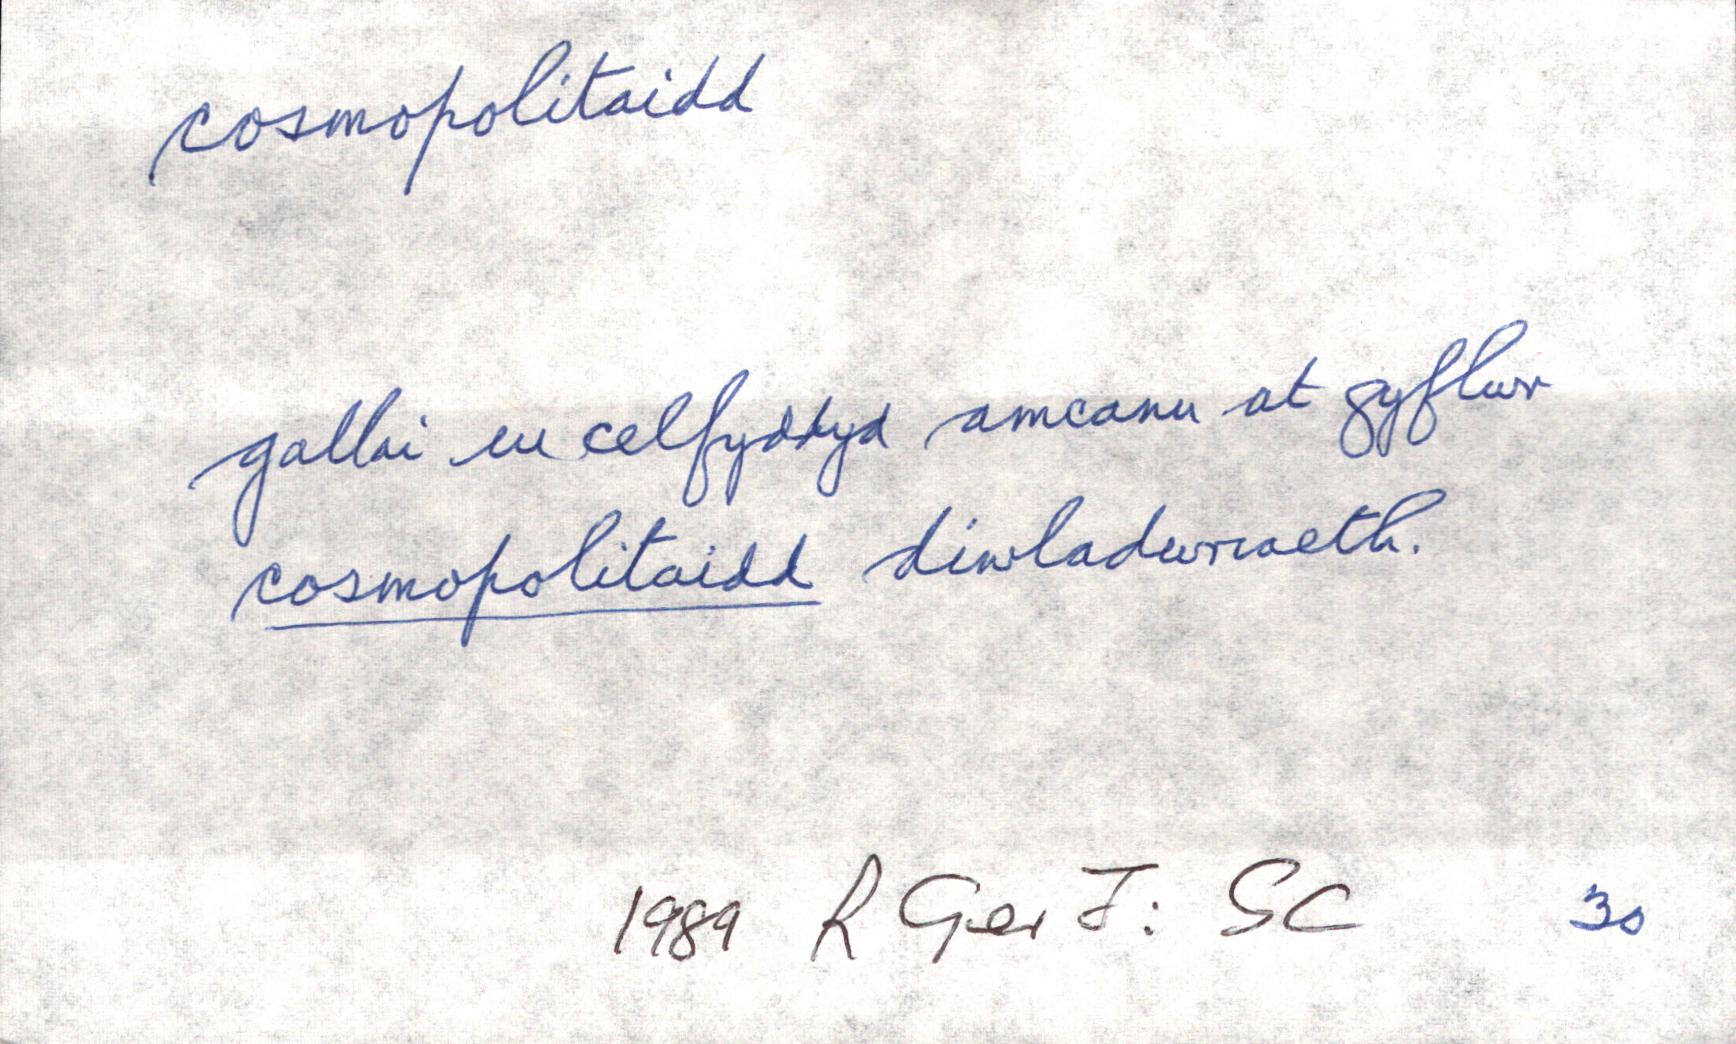 cosmopolitaidd
gallai eu celfyddyd amcanu at gyflwr
cosmopolitaidd diwladwriaeth.
1989 R Ger J: SC 30